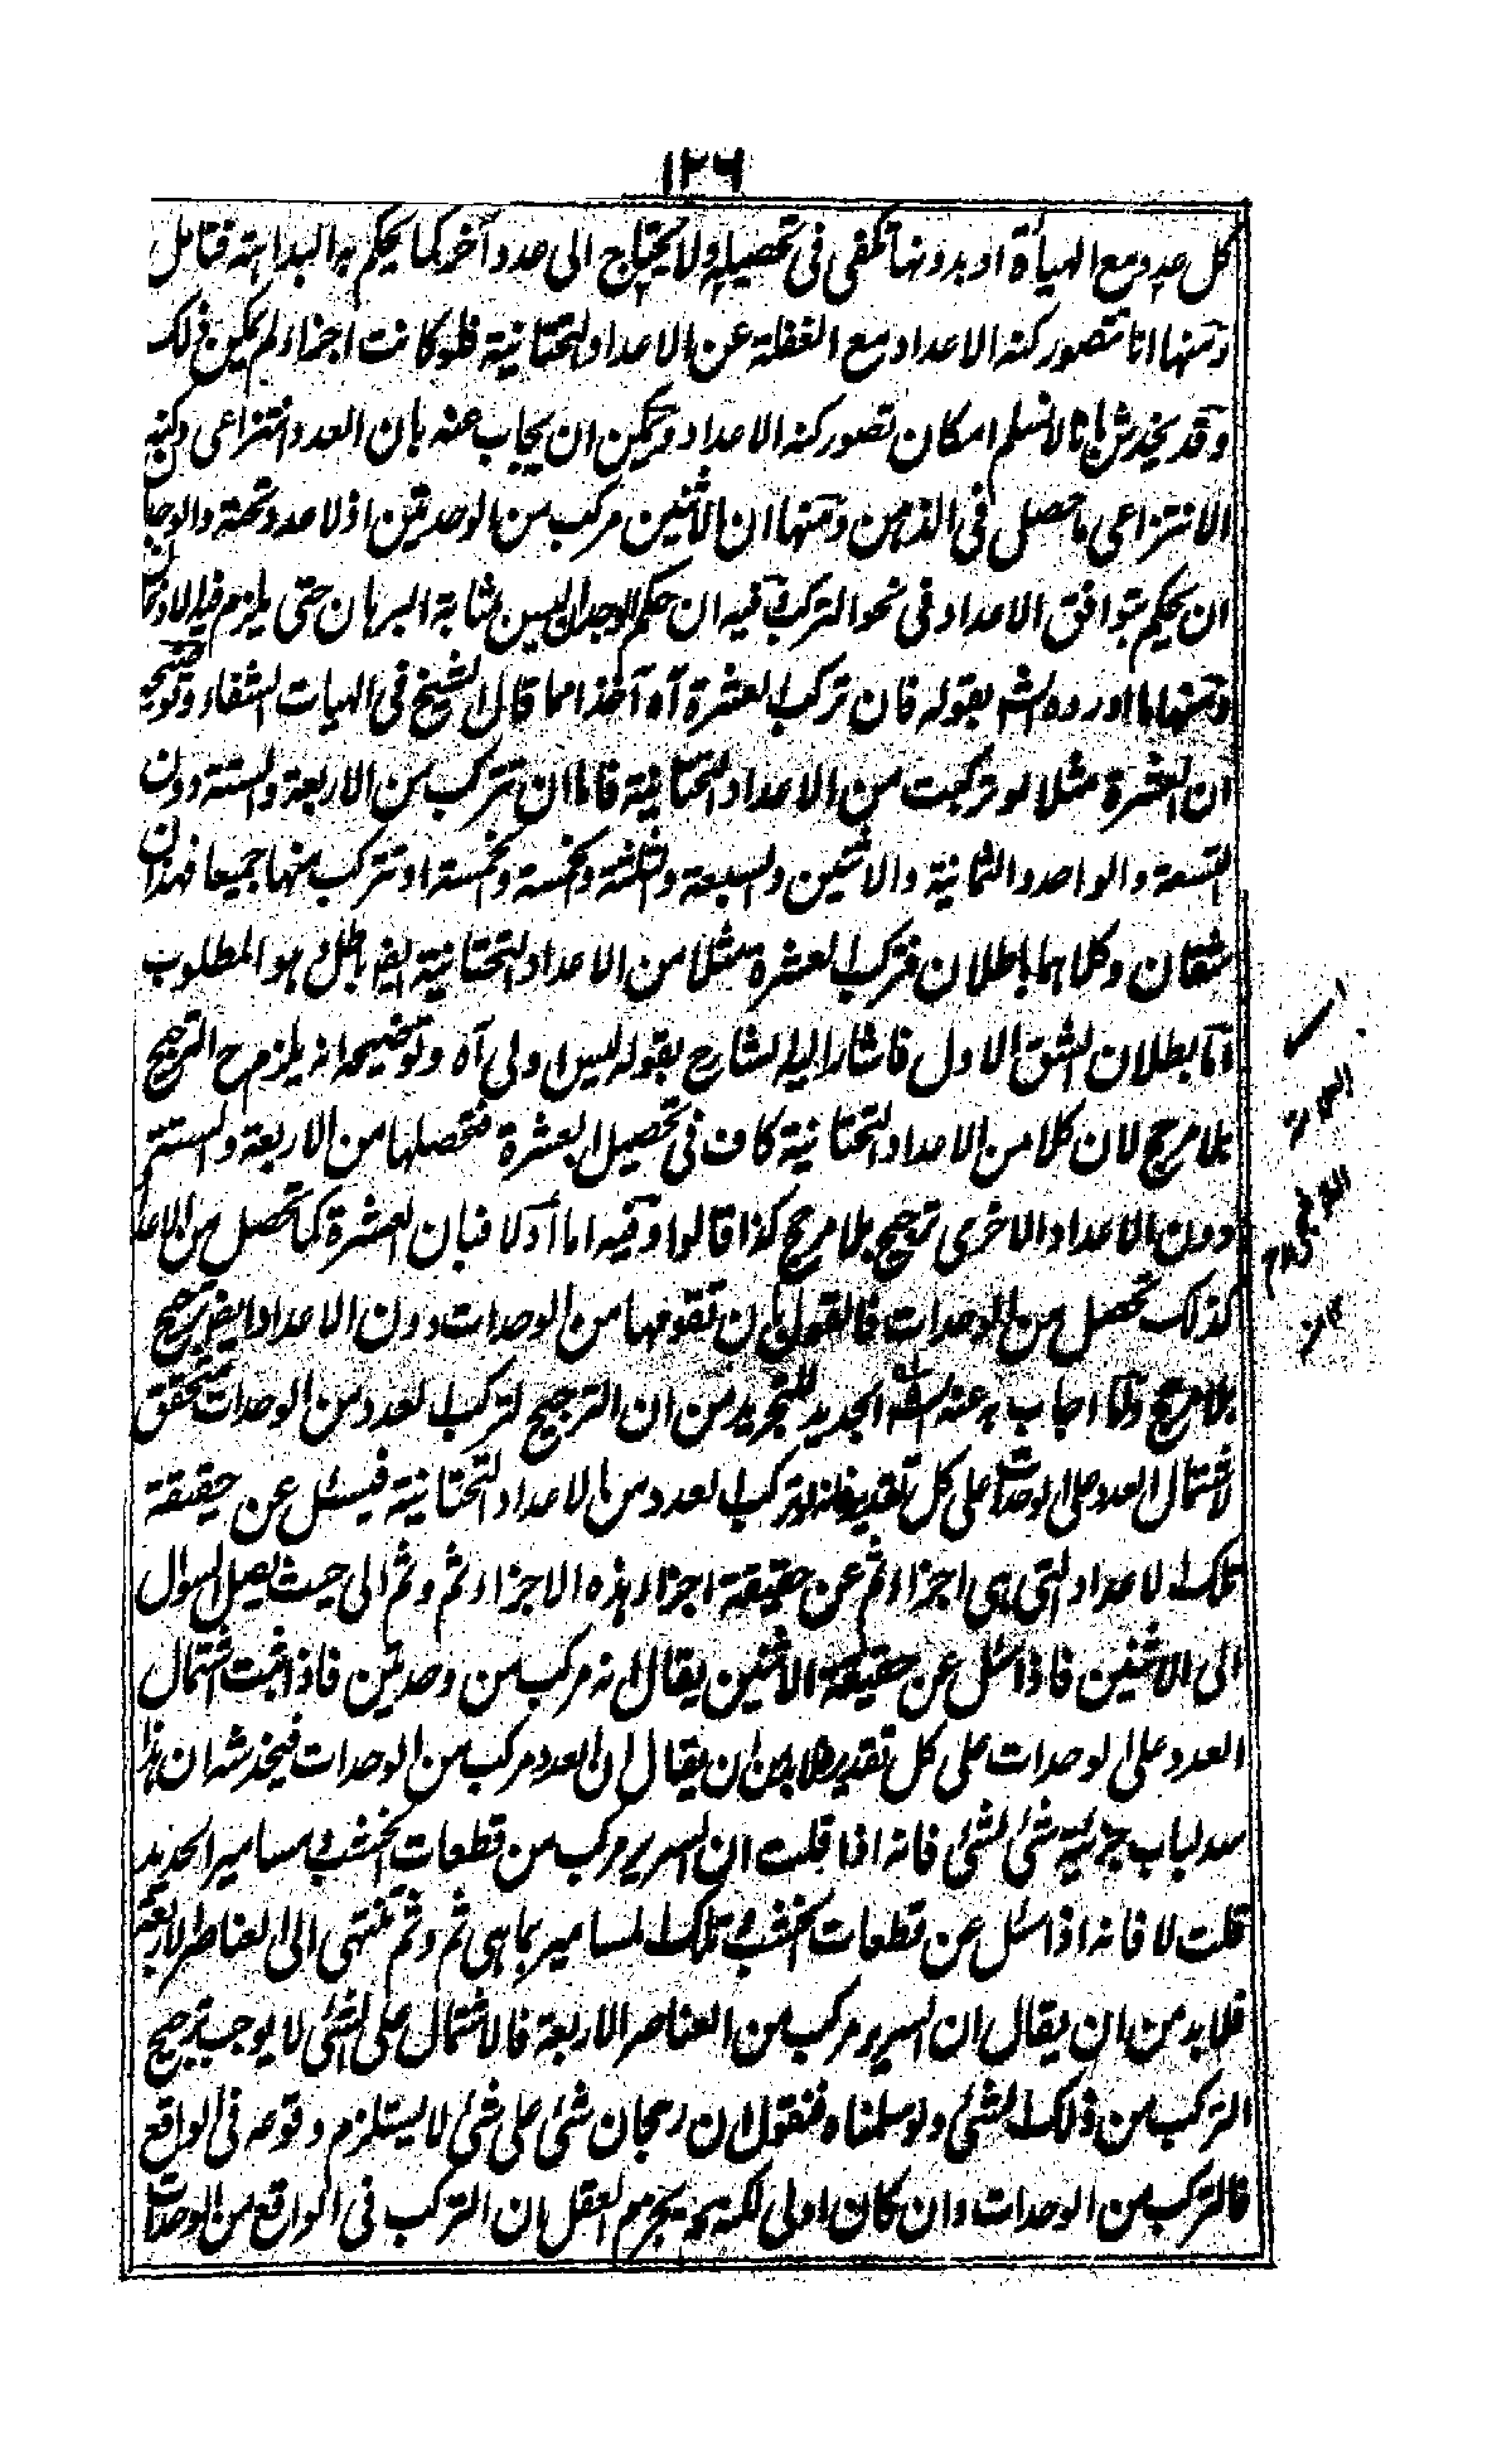 ١٢٦
كل عدد مع الهيأة او بدونها تكفى فى تحصيله ولا يحتاج الى عدد آخر كما يحكم به البداهة فتامل
ومنها انا نتصور كنه الاعداد مع الغفلة عن الاعداد التحتانية فلو كانت اجزاء لم يمكن ذلك
وقد يخدش بانا لا نسلم امكان تصور كنه الاعداد ويمكن ان يجاب عنه بان العدد انتزاعى وكنه
الانتزاعى ما حصل فى الذهن ومنها ان الاثنين مركب من الوحدتين اذ لا عدد تحته والوجدان
ان يحكم بتوافق الاعداد فى نحو التركب وفيه ان حكم الوجدان ليس بمثابة البرهان حتى يلزم فيه الاذعان
ومنها ما اورده الشه بقوله فان تركب العشرة آه آخذا مما قال الشيخ فى الهيات الشفاء وتوضيحه
ان العشرة مثلا لو تركبت من الاعداد التحتانية فاما ان تتركب من الاربعة والستة دون
التسعة والواحد والثمانية والاثنين والسبعة والثلثة والخمسة والخمسة او تتركب منها جميعا فهذان
شقان وكلاهما باطلان فتركب العشرة مثلا من الاعداد التحتانية ايضا باطل وهو المطلوب
اما بطلان الشق الاول فاشار اليه الشارح بقوله ليس اولى آه وتوضيحه انه يلزم ح الترجيح
بلا مرجح لان كلا من الاعداد التحتانية كاف فى تحصيل العشرة فتحصلها من الاربعة والستة
دون الاعداد الاخرى ترجيح بلا مرجح كذا قالوا وفيه اما اولا فبان العشرة كما تحصل من الاعداد
كذلك تحصل من الوحدات فالقول بان تقومها من الوحدات دون الاعداد ايضا ترجيح
بلا مرجح واما اجاب به عنه الشه الجديد للتجريد من ان الترجيح لتركب العدد من الوحدات متحقق
لاشتمال العدد على الوحدات على كل تقدير فانه لو تركب العدد من الاعداد التحتانية فيسئل عن حقيقة
تلك الاعداد التى هى اجزاء ثم عن حقيقة اجزاء هذه الاجزاء ثم وثم الى حيث يصل السوال
الى الاثنين فاذا سئل عن حقيقة الاثنين يقال انه مركب من وحدتين فاذا ثبت اشتمال
العدد على الوحدات على كل تقدير فلا بد من ان يقال ان العدد مركب من الوحدات فيخدشه ان هذا
سد لباب جزئية شئ لشئ فانه اذا قلت ان السرير مركب من قطعات الخشب ومسامير الحديد
قلت لا فانه اذا سئل عن قطعات الخشب وتلك المسامير بما هى ثم وثم تنتهى الى العناصر الاربعة
فلا بد من ان يقال ان السرير مركب من العناصر الاربعة فالاشتمال على الشئ لا يوجب ترجيح
التركب من ذلك الشئ ولو سلمناه فنقول ان رجحان شئ على شئ لا يستلزم وقوعه فى الواقع
فالتركب من الوحدات وان كان اولى لكنه يجزم العقل ان التركب فى الواقع من الوحدات